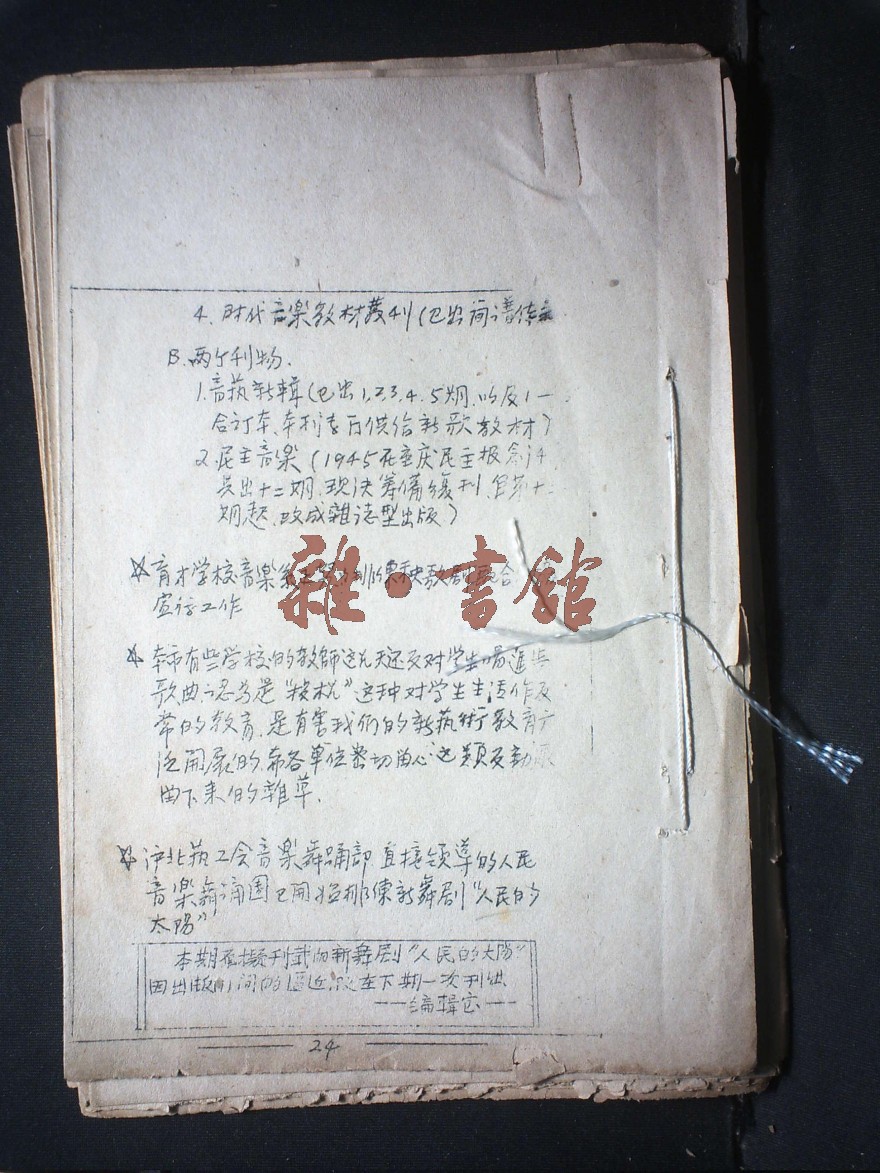 4. 时代音楽教材叢刊(已出简谱
B. 两个刊物.
1. 音執新輯(已出1,2,3,4.5期.以及1一
合订本、本刊专门供给新歌教材)
2. 民主音楽(1945在重庆民主报
共出十二期.现决筹備復刊.自第十二
期起.改成雜誌型出版)
☆育才学校音楽 排练秧歌剧配合
宣传工作
雜·書館
☆本市有些学校的教師这几天还反对学生唱進步
歌曲.認为是"投机"这种对学生生活作反
常的教育.是有害我们的新執術教育广
泛開展的.希各单位密切留心这類反動派
留下来的雜草.
☆沪北執工会音楽舞踊部直接领導的人民
音楽舞踊团已開始排練新舞剧"人民的
太陽"
本期原擬刊載的新舞剧"人民的太陽"
因出版時间的逼近.改在下期一次刊出.
——编輯室——
24